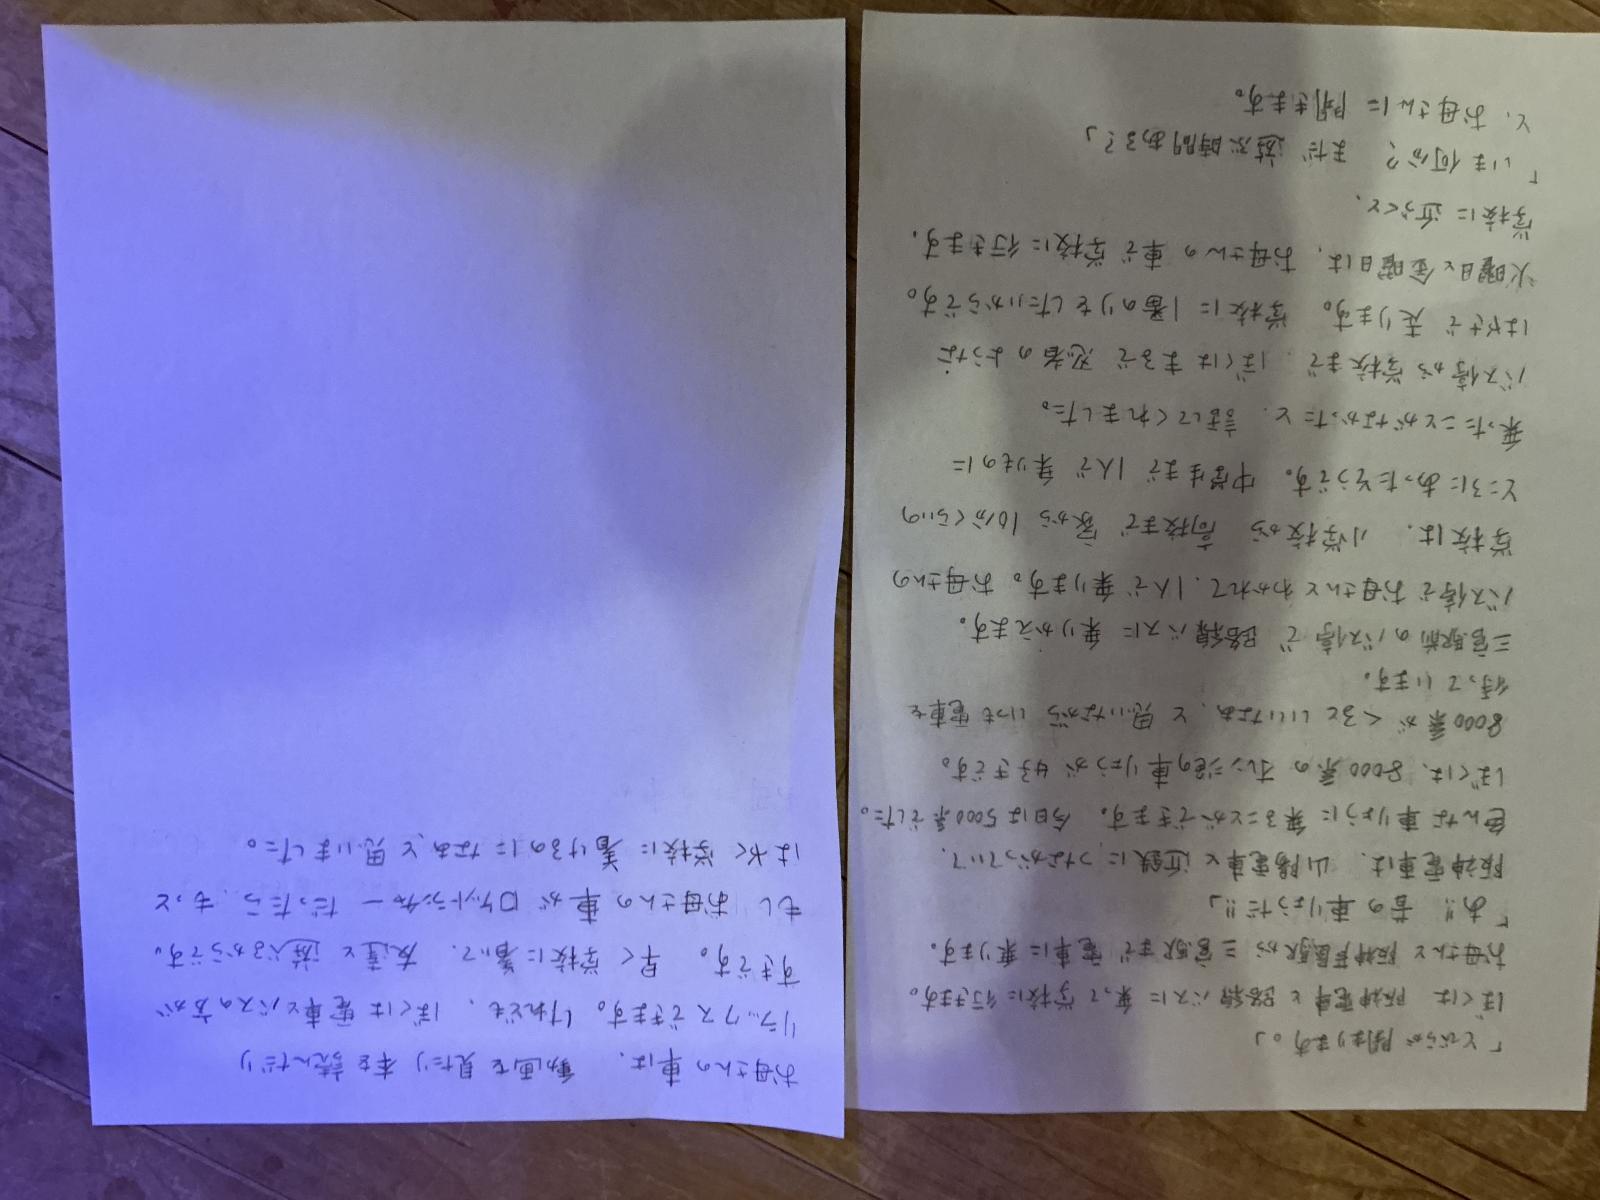 「とびらが閉まります。」
ぼくは 阪神電車と 路線バスに 乗って 学校に 行きます。
お母さんと 阪神芦屋駅から 三宮駅まで 電車に 乗ります。
「あ!! 昔の 車りょうだ!!」
阪神電車は、 山陽電車と 近鉄に つながっていて、
色んな 車りょうに 乗ることが できます。 今日は 5000系でした。
ぼくは、8000系の オレンジ色の 車りょうが 好きです。
8000系が くるといいなあ、と 思いながら いつも 電車を
待っています。
三宮駅前の バス停で 路線バスに 乗りかえます。
バス停で お母さんと わかれて、1人で 乗ります。 お母さんの
学校は、 小学校から 高校まで 家から 10分くらいの
ところに あったそうです。 中学生まで 1人で 乗りものに
乗ったことが なかったと、 話してくれました。
バス停から 学校まで、 ぼくは まるで 忍者の ような
はやさで 走ります。 学校に 1番のりを したいからです。
火曜日と 金曜日は、 お母さんの 車で 学校に 行きます。
学校に 近づくと、
「いま 何分? まだ 遊ぶ 時間 ある?」
と、お母さんに 聞きます。
お母さんの 車は、 動画を 見たり 本を 読んだり
リラックスできます。 けれども、 ぼくは 電車と バスの 方が
すきです。 早く 学校に 着いて、 友達と 遊べるからです。
もし お母さんの 車が ロケットランチャー だったら、もっと
はやく 学校に 着けるのになあ、と 思いました。